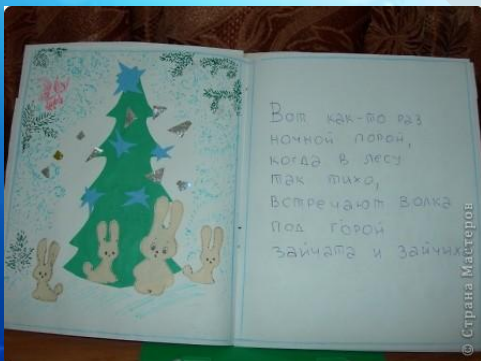 Вот как-то раз
ночной порой,
когда в лесу
так тихо,
встречают волка
под горой
зайчата и зайчиха
© Страна Мастеров